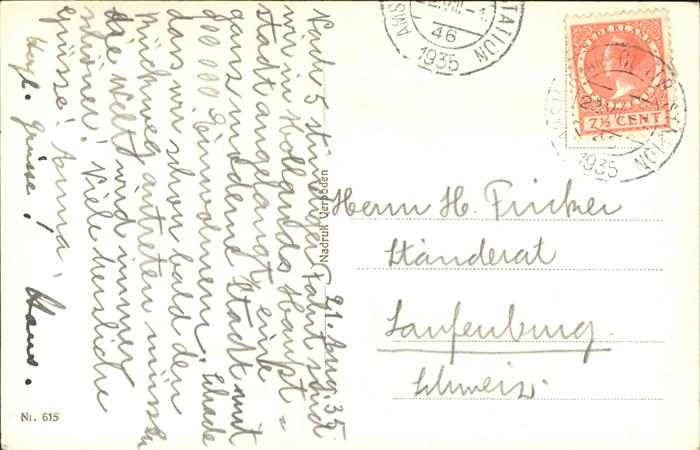 21. Aug. 35.
Nach 5 stündiger Fahrt sind
wir in Hollands Haupt-
stadt angelangt, eine
ganz moderne Stadt mit
800 000 Einwohnern. Schade
dass wir schon bald den
Rückweg antreten müssen
die Welt wird immer
schöner. Viele herzliche
Grüsse! Anna,
Hzl. Grüsse! Hans.
Nadruk Verboden
Nr. 615
AMS STATION
22.VIII -1
46
1935
NEDERLAND
7½ CENT
AMST STATION
1935
Herrn H. Fricker
Ständerat
Laufenburg.
Schweiz.